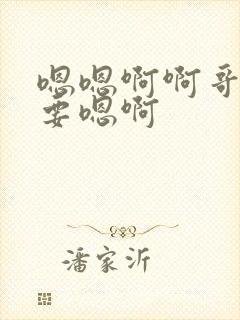 嗯嗯啊啊哥
要嗯啊
潘家沂